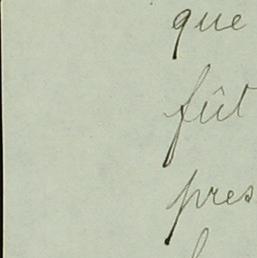 que
fût
pres